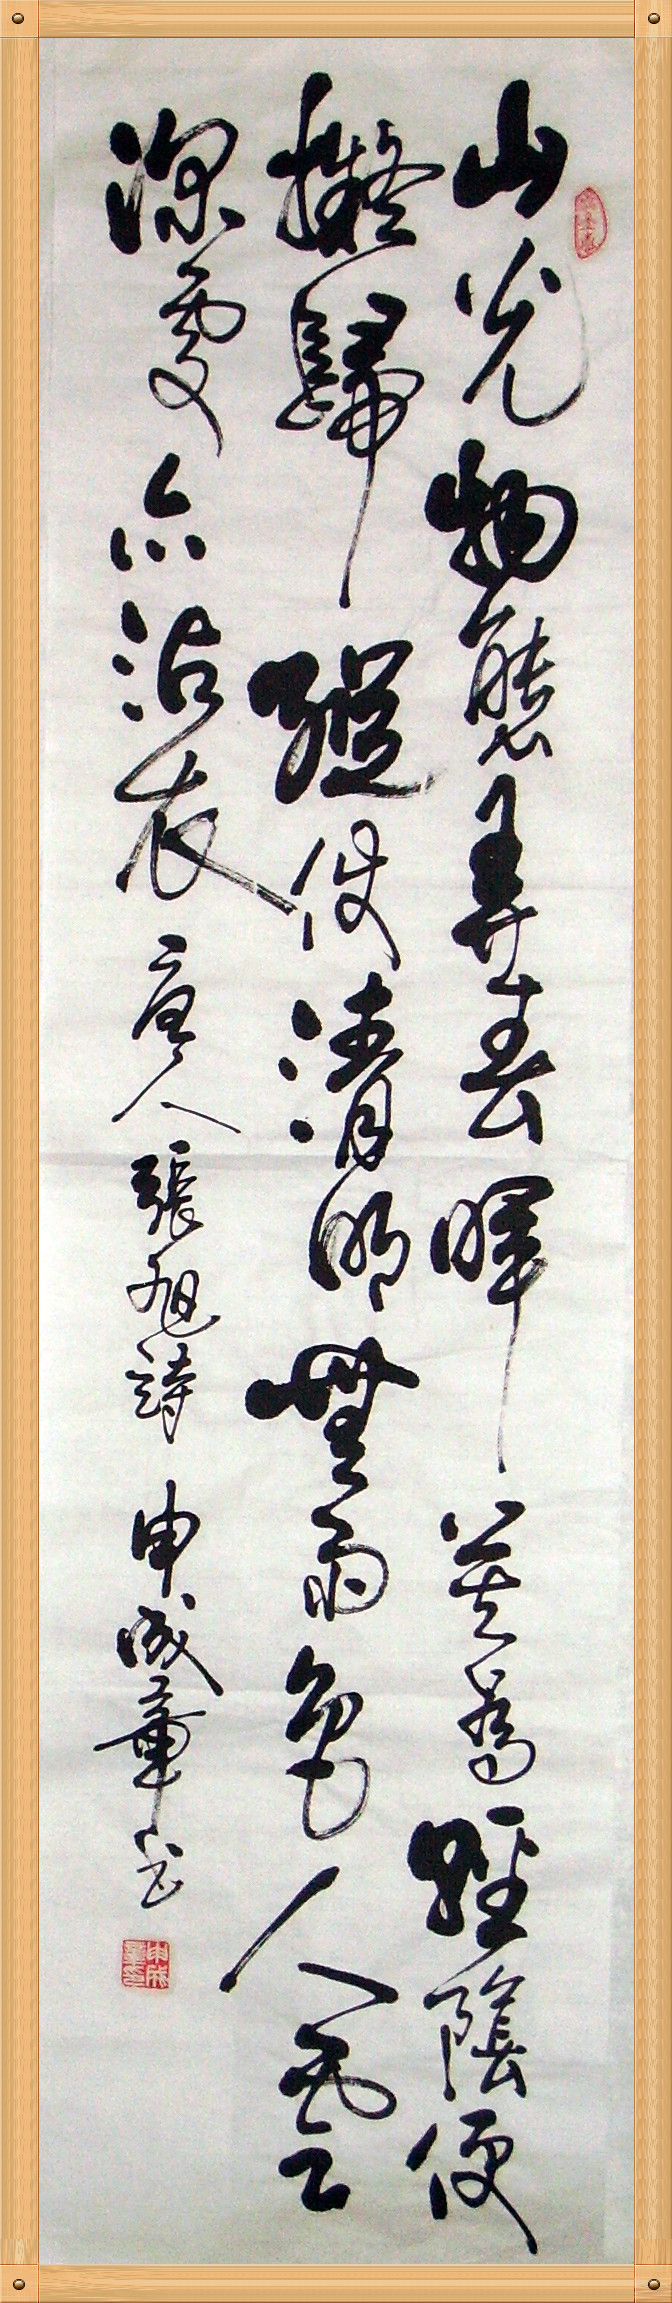 山光物態弄春暉莫為輕陰便
擬歸縱使清明無雨色入雲
深處亦沾衣 唐人張旭詩 申成章书
申成章印